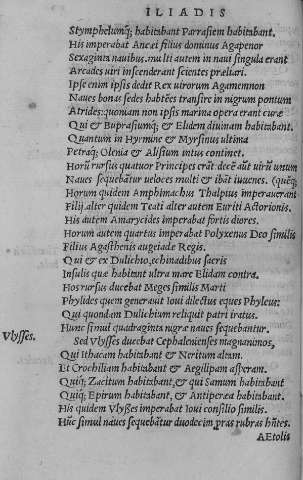 ILIADIS
Stymphelumq; habitabant Parrasiem habitabant.
His imperabat Ancæi filius dominus Agapenor
Sexaginta nauibus. multi autem in naui singula erant
Arcades uiri inscenderant scientes præliari.
Ipse enim ipsis dedit Rex uirorum Agamemnon
Naues bonas sedes habẽtes transire in nigrum pontum
Atrides: quoniam non ipsis marina opera erant curæ
Qui & Buprasiumq; & Elidem diuinam habitabant.
Quantum in Hyrmine & Myrsinus ultima
Petraq; Olenia & Alisium intus continet.
Horũ rursus quatuor Principes erãt decẽ aũt uirũ unum
Naues sequebãtur ueloces multi & ibãt iuuenes. (quẽq;
Horum quidem Amphimachus Thalpius imperauerant
Filij alter quidem Teati alter autem Euriti Actorionis.
His autem Amarycides imperabat fortis diores.
Horum autem quartus imperabat Polyxenus Deo similis
Filius Agasthenis augeiade Regis.
Qui & ex Dulichio, echinadibus sacris
Insulis quæ habitant ultra mare Elidam contra.
Hos rursus ducebat Meges similis Marti
Phylides quem generauit Ioui dilectus eques Phyleus:
Qui quondam Dulichium reliquit patri iratus.
Hunc simul quadraginta nigræ naues sequebantur.
Vlysses.
Sed Vlysses ducebat Cephalenienses magnanimos,
Qui Ithacam habitabant & Neritum altam.
Et Crochiliam habitabant & Aegilipam asperam.
Quiq; Zacitum habitabant, & qui Samum habitabant
Quiq; Epirum habitabant, & Antiperæa habitabant.
His quidem Vlysses imperabat Ioui consilio similis.
Hũc simul naues sequebãtur duodecim pras rubras hñtes.
AEtolis